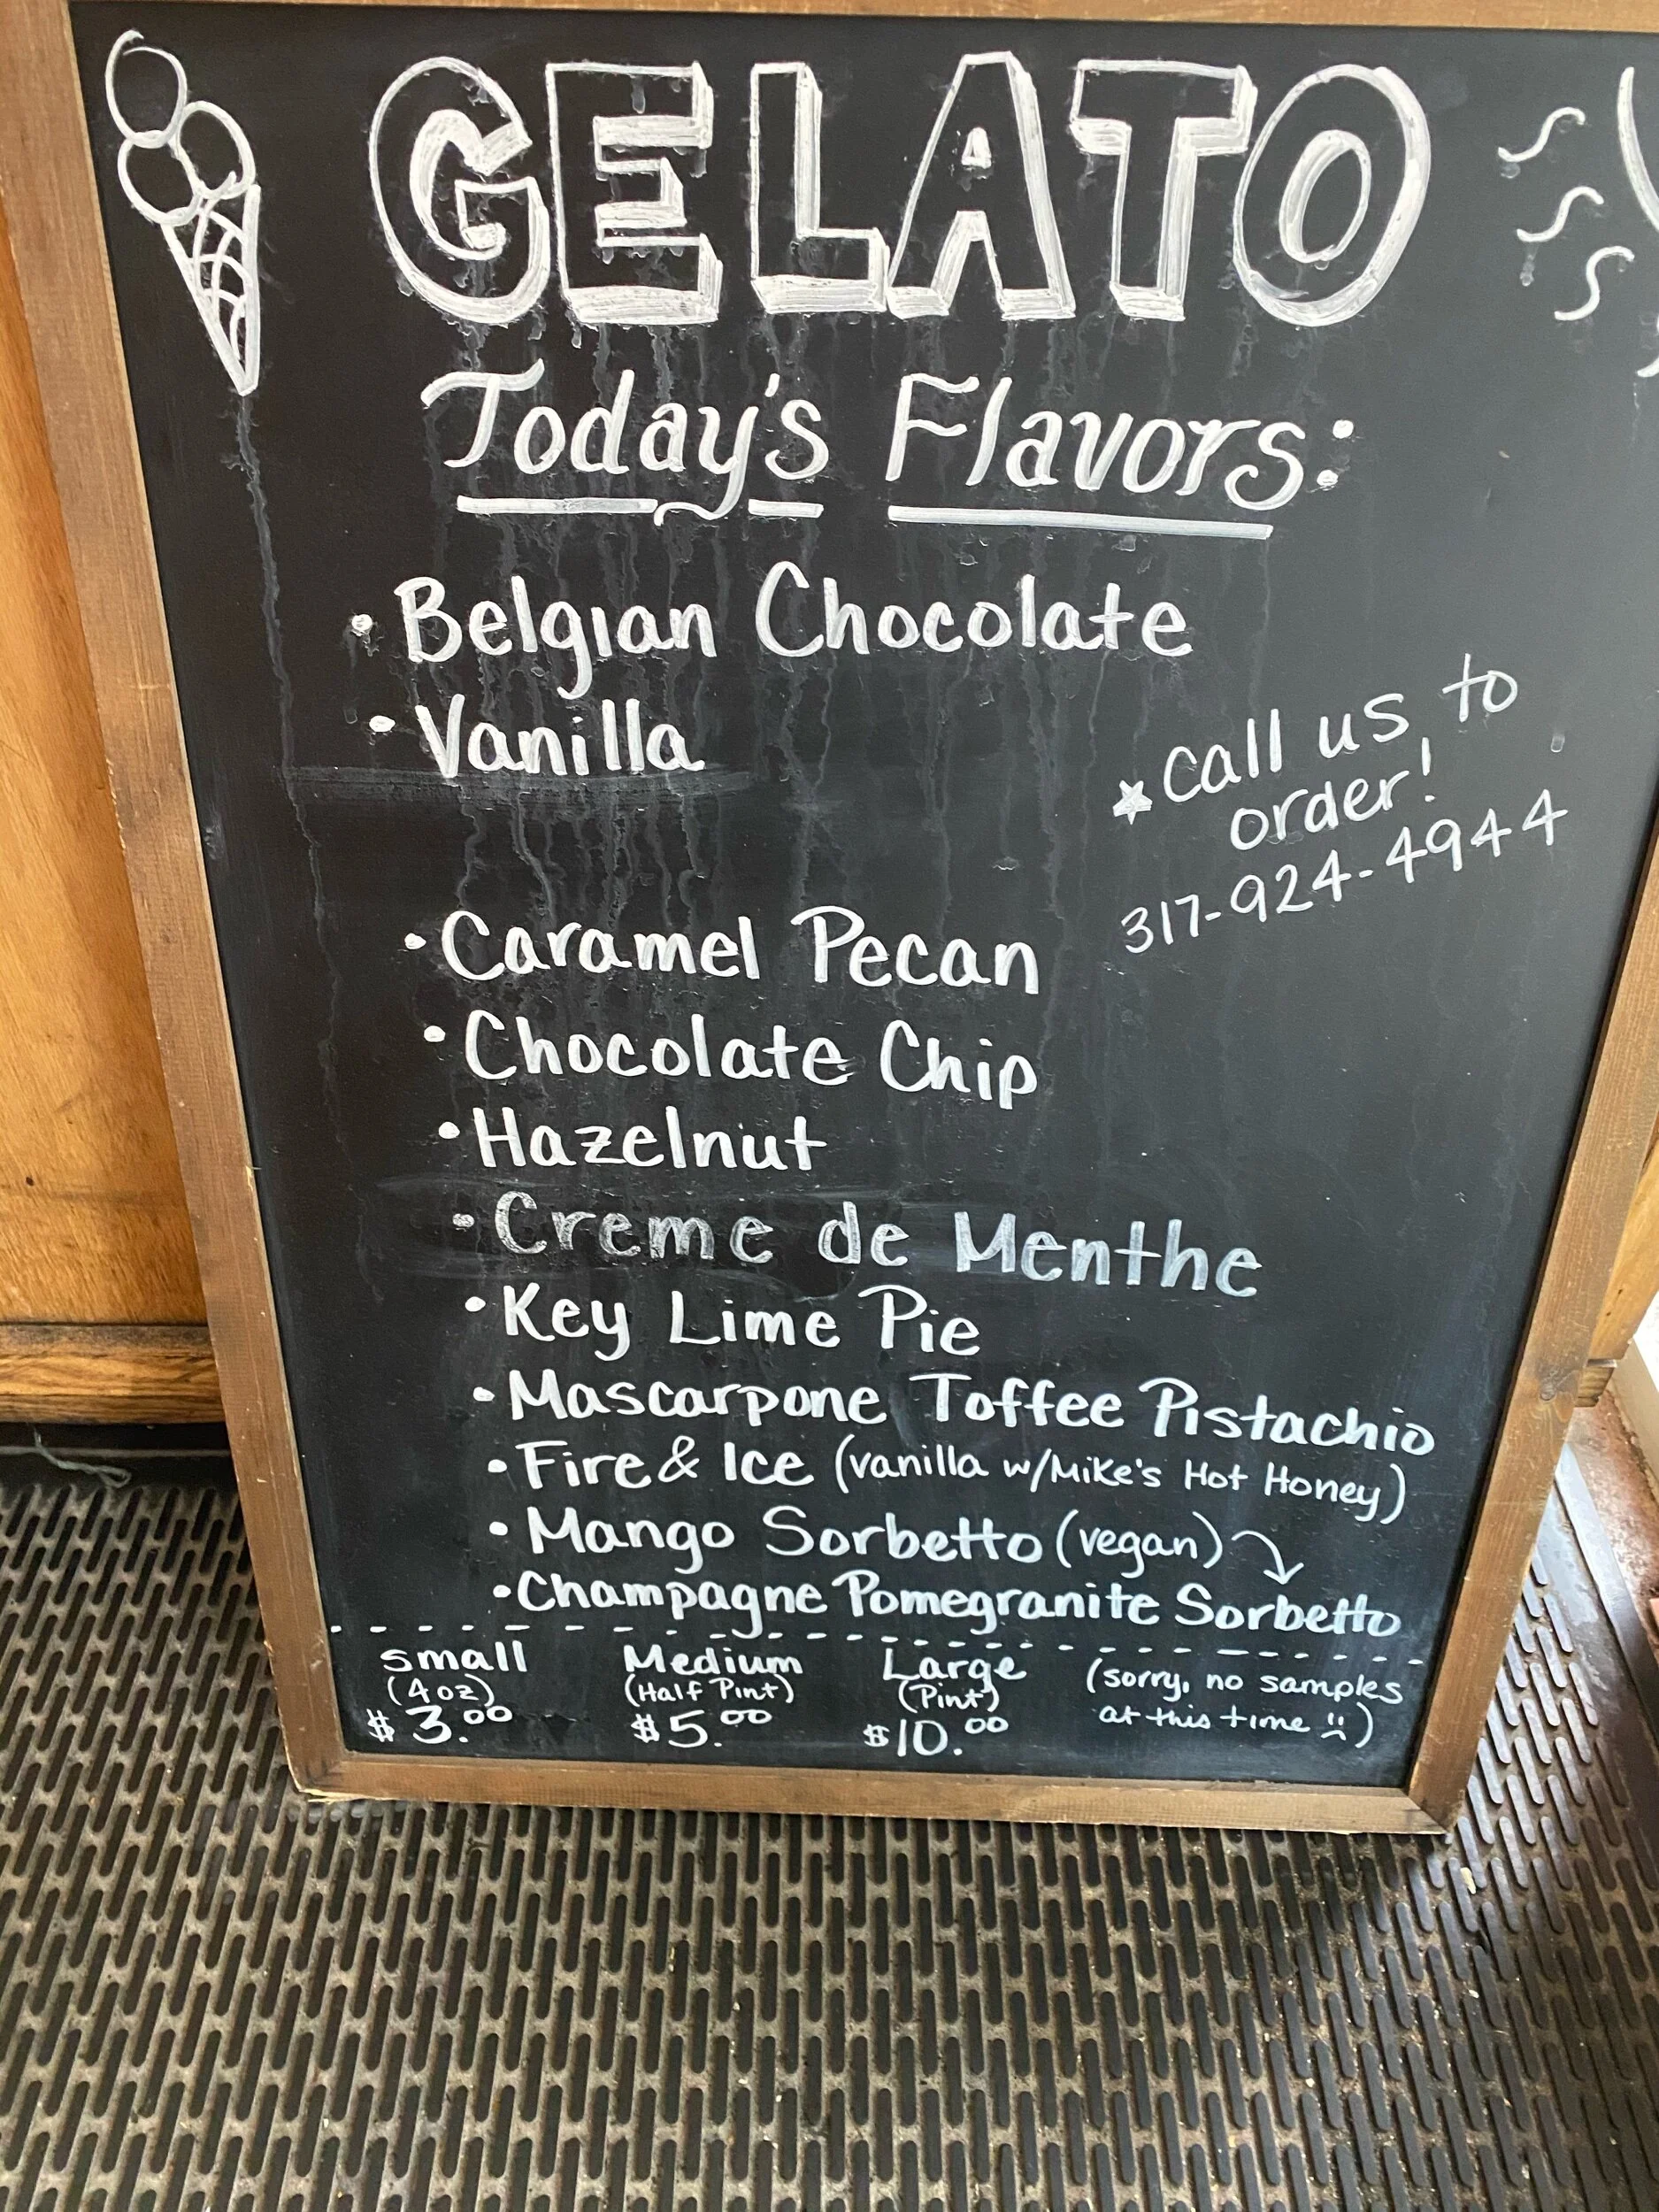 GELATO
Today's Flavors:
• Belgian Chocolate
• Vanilla
★ call us to
order!
317-924-4944
• Caramel Pecan
• Chocolate Chip
• Hazelnut
• Creme de Menthe
• Key Lime Pie
• Mascarpone Toffee Pistachio
• Fire & Ice (vanilla w/Mike's Hot Honey)
• Mango Sorbetto (vegan)
• Champagne Pomegranite Sorbetto
small Medium Large (sorry, no samples
(4 oz) (Half Pint) (Pint) at this time ☹)
$3.00 $5.00 $10.00